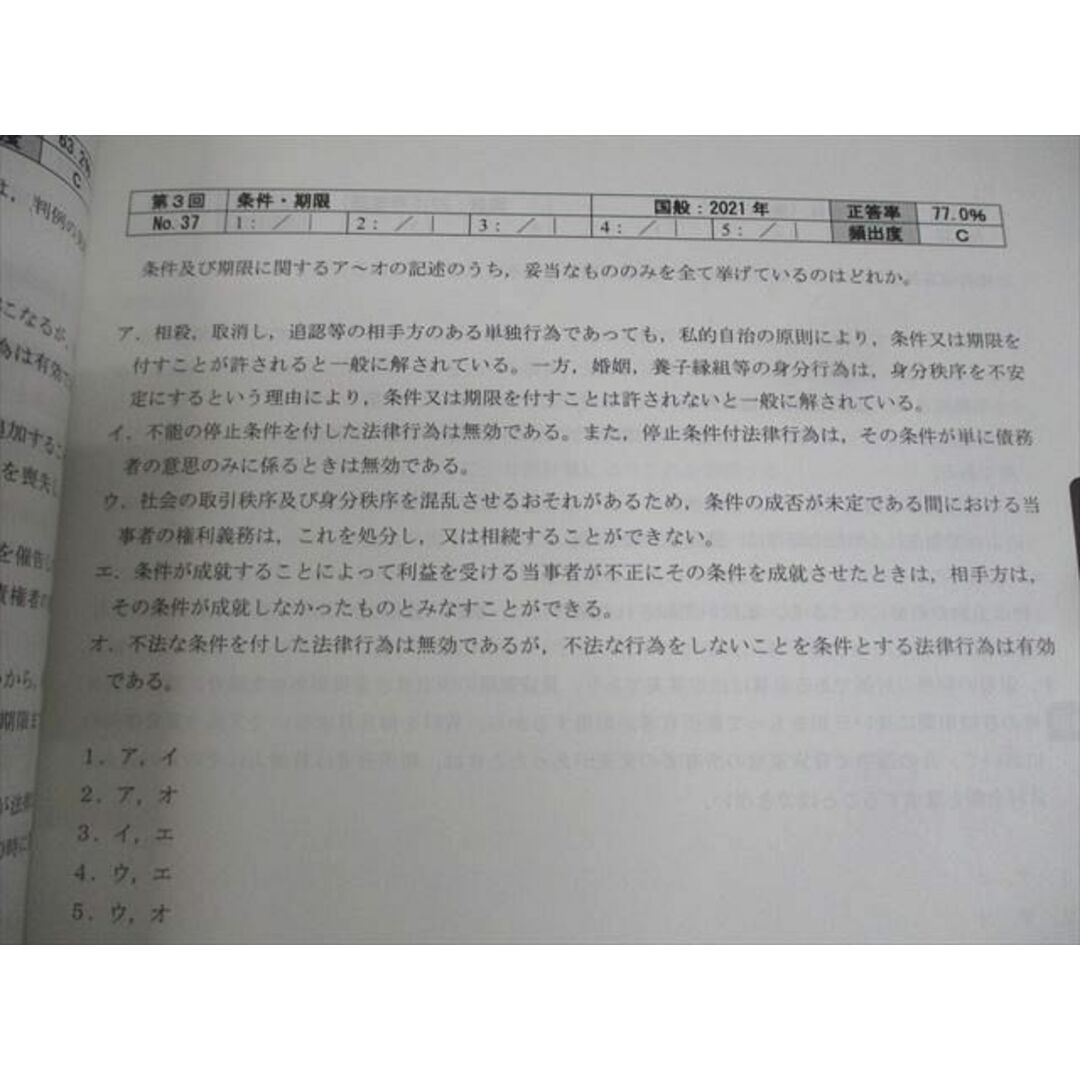 63.2%
C
は, 判例の
第3回 条件・期限 国般：2021年 正答率 77.0%
No.37 1：／ 2：／ 3：／ 4：／ 5：／ 頻出度 C
条件及び期限に関するア～オの記述のうち，妥当なもののみを全て挙げているのはどれか。
ア．相殺，取消し，追認等の相手方のある単独行為であっても，私的自治の原則により，条件又は期限を
付すことが許されると一般に解されている。一方，婚姻，養子縁組等の身分行為は，身分秩序を不安
定にするという理由により，条件又は期限を付すことは許されないと一般に解されている。
イ．不能の停止条件を付した法律行為は無効である。また，停止条件付法律行為は，その条件が単に債務
者の意思のみに係るときは無効である。
ウ．社会の取引秩序及び身分秩序を混乱させるおそれがあるため，条件の成否が未定である間における当
事者の権利義務は，これを処分し，又は相続することができない。
エ．条件が成就することによって利益を受ける当事者が不正にその条件を成就させたときは，相手方は，
その条件が成就しなかったものとみなすことができる。
オ．不法な条件を付した法律行為は無効であるが，不法な行為をしないことを条件とする法律行為は有効
である。
1．ア，イ
2．ア，オ
3．イ，エ
4．ウ，エ
5．ウ，オ
こなるが，
為は有効
追加するこ
を喪失し
を催告し
責権者の
から，
期限ま